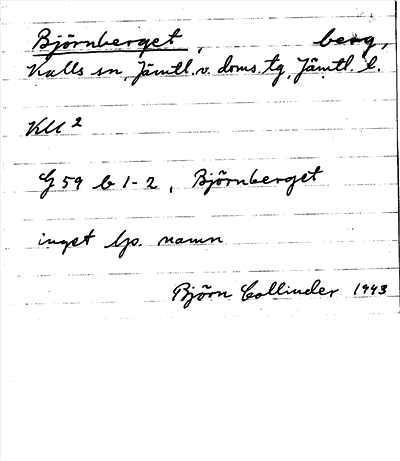 Björnberget, berg,
Kalls sn, Jämtl. v. doms. tg, Jämtl. l.
KU 2
G 59 b 1-2, Björnberget
inget lp. namn
Björn Collinder 1943